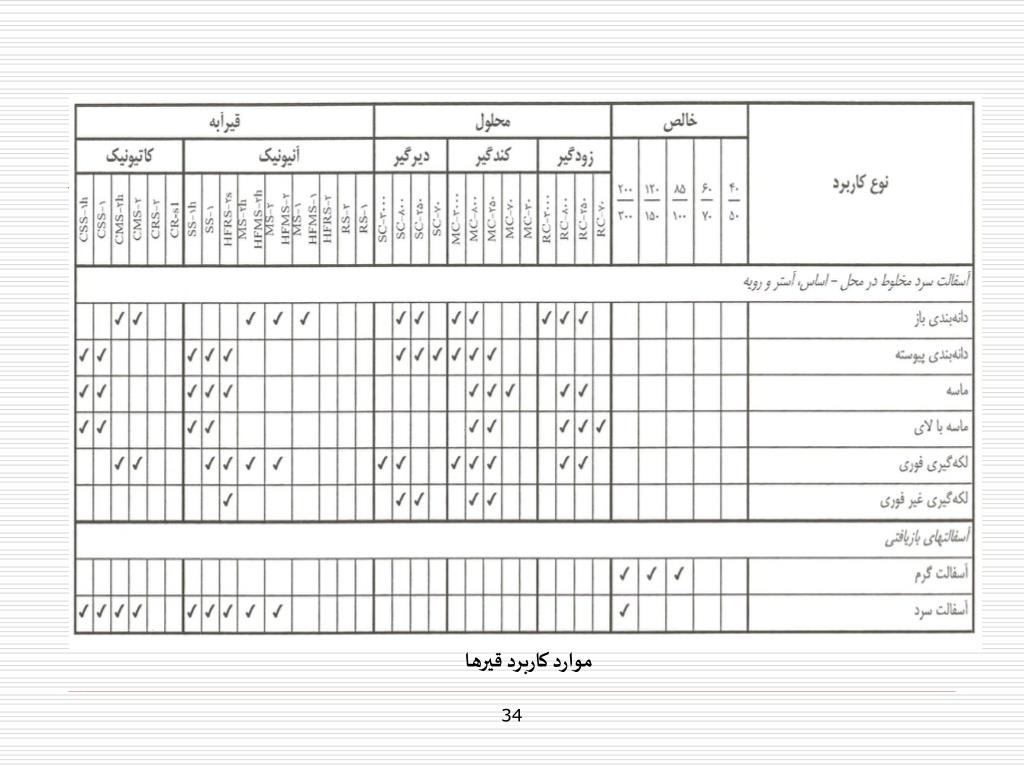 نوع کاربرد
خالص
محلول
قیرآبه
زودگیر
کندگیر
دیرگیر
آنیونیک
کاتیونیک
۴۰/۵۰ ۶۰/۷۰ ۸۵/۱۰۰ ۱۲۰/۱۵۰ ۲۰۰/۳۰۰
RC-۷۰ RC-۲۵۰ RC-۸۰۰ RC-۳۰۰۰
MC-۳۰ MC-۷۰ MC-۲۵۰ MC-۸۰۰ MC-۳۰۰۰
SC-۷۰ SC-۲۵۰ SC-۸۰۰ SC-۳۰۰۰
RS-۱ RS-۲ HFRS-۲ HFMS-۱ MS-۱ HFMS-۲ MS-۲ HFMS-۲h MS-۲h HFRS-۲s SS-۱ SS-۱h
CR-s1 CRS-۲ CMS-۲ CMS-۲h CSS-۱ CSS-۱h
آسفالت سرد مخلوط در محل - اساس، آستر و رویه
دانه‌بندی باز ✓ ✓ ✓ ✓ ✓ ✓ ✓ ✓ ✓ ✓ ✓ ✓
دانه‌بندی پیوسته ✓ ✓ ✓ ✓ ✓ ✓ ✓ ✓ ✓ ✓ ✓
ماسه ✓ ✓ ✓ ✓ ✓ ✓ ✓ ✓ ✓ ✓
ماسه با لای ✓ ✓ ✓ ✓ ✓ ✓ ✓ ✓ ✓
لکه‌گیری فوری ✓ ✓ ✓ ✓ ✓ ✓ ✓ ✓ ✓ ✓ ✓ ✓ ✓
لکه‌گیری غیر فوری ✓ ✓ ✓ ✓ ✓
آسفالتهای بازیافتی
آسفالت گرم ✓ ✓ ✓
آسفالت سرد ✓ ✓ ✓ ✓ ✓ ✓ ✓ ✓ ✓ ✓
موارد کاربرد قیرها
34